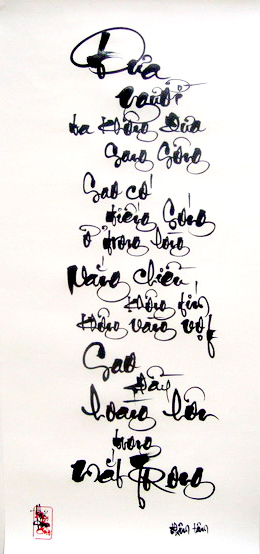 Đưa
người
ta không đưa
sang sông
Sao có
tiếng sóng
ở trong lòng
Nắng chiều
không
không vàng vọt
Sao
đầy
hoàng hôn
trong
mắt trong